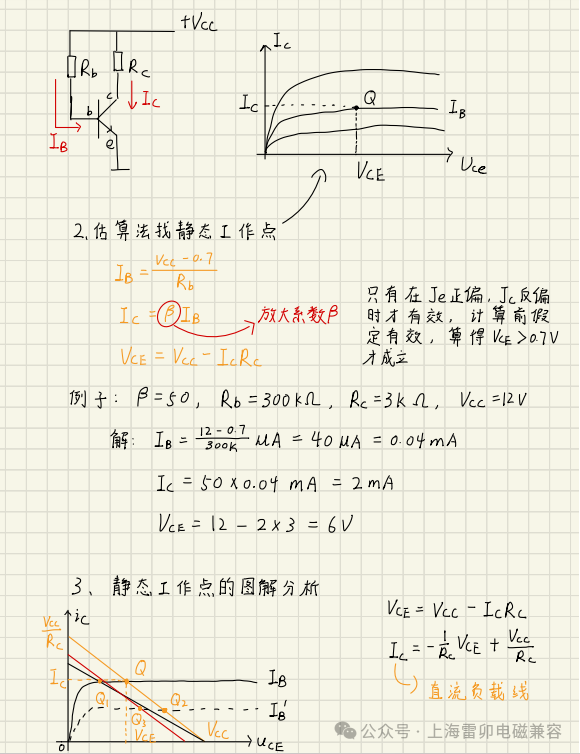 +Vcc
Rb
Rc
c
b
e
IC
IB
IC
IC
Q
IB
VCE
Uce
2、估算法找静态工作点
IB = (Vcc - 0.7) / Rb
IC = βIB
放大系数β
VCE = Vcc - ICRC
只有在Je正偏,Jc反偏
时才有效,计算前假
定有效,算得VCE>0.7V
才成立
例子: β=50, Rb=300kΩ, Rc=3kΩ, Vcc=12V
解: IB = (12-0.7) / 300k μA = 40μA = 0.04mA
IC = 50×0.04 mA = 2mA
VCE = 12 - 2×3 = 6V
3、静态工作点的图解分析
iC
Vcc/Rc
IC
Q
IB
Q1
Q2
Q3
IB'
VCE
Vcc
0
uCE
VCE = Vcc - ICRC
IC = -1/Rc VCE + Vcc/Rc
直流负载线
公众号·上海雷卯电磁兼容